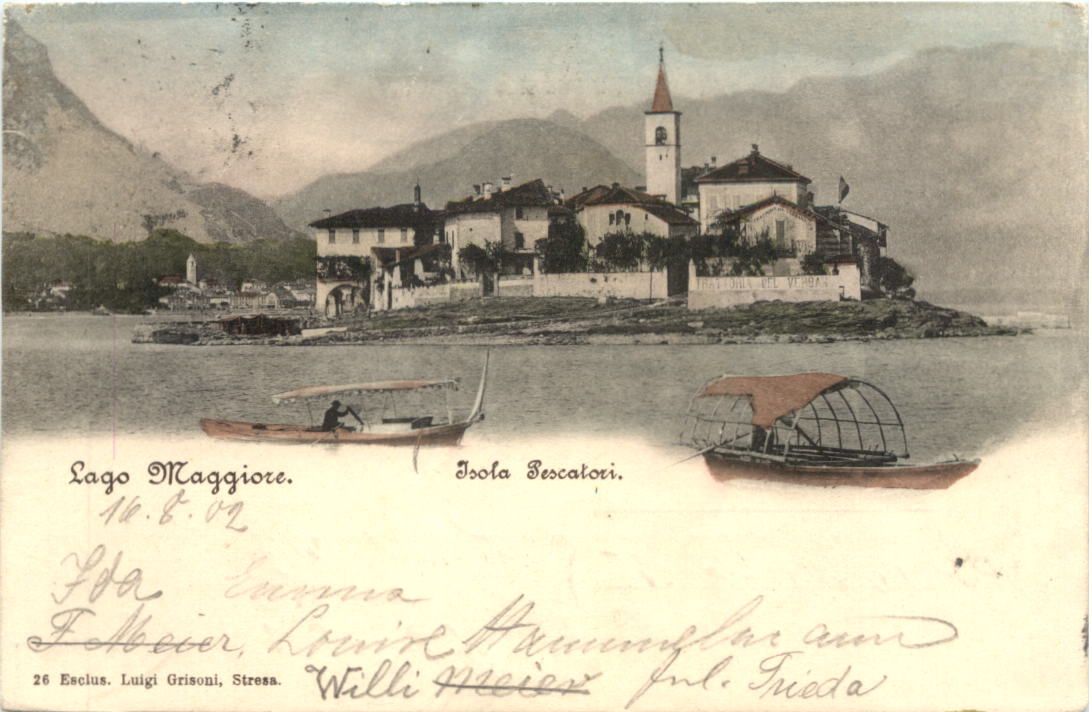 TRATTORIA DEL VERBANO
Lago Maggiore. Isola Pescatori.
16.8.02
Ida Emma
F Meier, Louise Hammelmann
26 Esclus. Luigi Grisoni, Stresa. Willi Meier Frl. Frieda